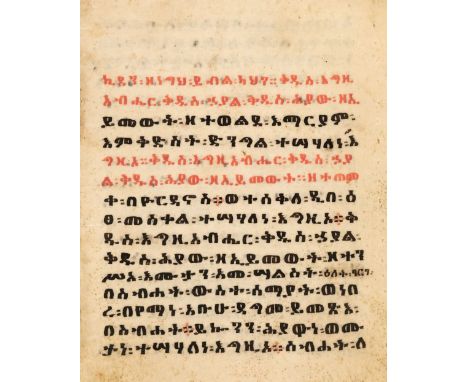 ኪዳን፡ ዘነግህ፡ ይብል፡ ካህን፡ ቅዱስ፡ እግዚ
አብሔር፡ ቅዱስ፡ ኃያል፡ ቅዱስ፡ ሕያው፡ ዘኢ
ይመውት፡ ዘተወልደ፡ እማርያም፡
እምቅድስት፡ ድንግል፡ ተሣሃለነ፡ እ
ግዚእ፡ ቅዱስ፡ እግዚአብሔር፡ ቅዱስ፡ ኃያ
ል፡ ቅዱስ፡ ሕያው፡ ዘኢይመውት፡ ዘተጠም
ቀ፡ በዮርዳኖስ፡ ወተሰቅለ፡ ዲበ፡ ዕ
ፀ፡ መስቀል፡ ተሣሃለነ፡ እግዚኦ፡ ቅ
ዱስ፡ እግዚአብሔር፡ ቅዱስ፡ ኃያል፡
ቅዱስ፡ ሕያው፡ ዘኢይመውት፡ ዘተን
ሥአ፡ እሙታን፡ አመ፡ ሣልስት፡ ዕለት፡ ዓርገ፡
በስብሐት፡ ውስተ፡ ሰማያት፡ ወነበ
ረ፡ በየማነ፡ አቡሁ፡ ዳግመ፡ ይመጽእ፡
በስብሐት፡ ይኰንን፡ ሕያወነ፡ ወሙ
ታነ፡ ተሣሃለነ፡ እግዚኦ፡ ስብሐት፡ ለ